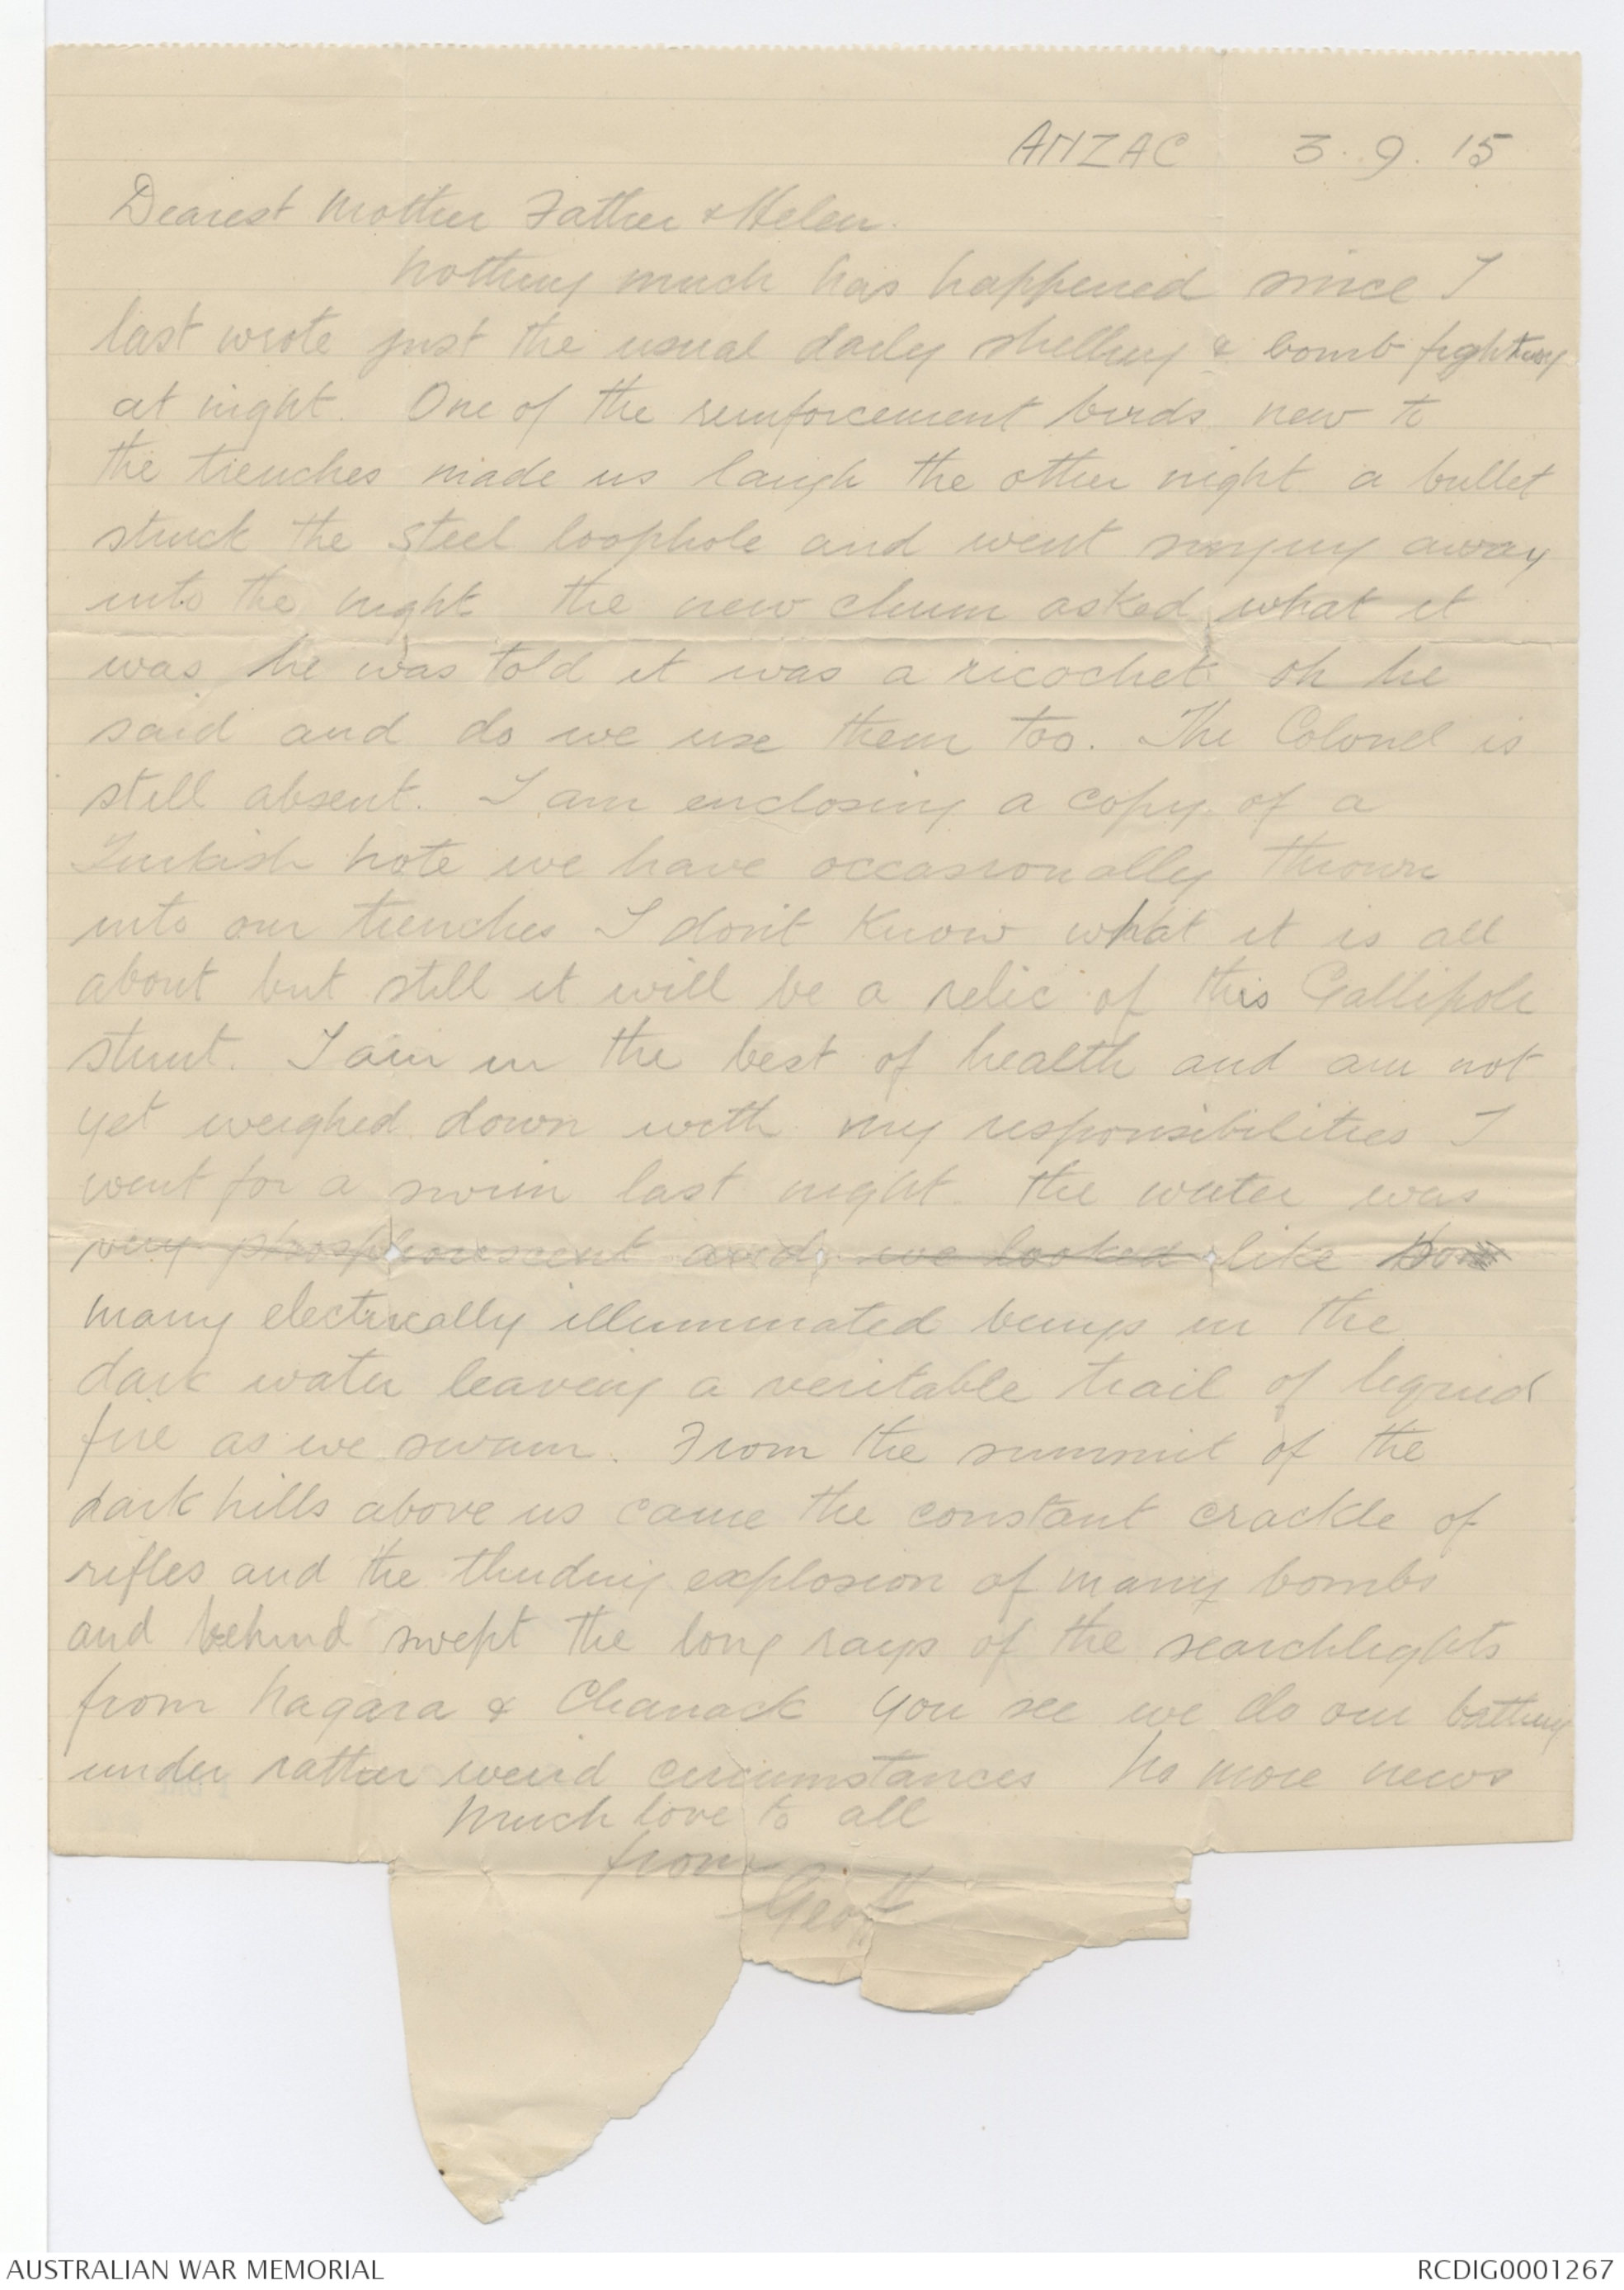 ANZAC 3.9.15
Dearest Mother Father & Helen.
Nothing much has happened since I
last wrote just the usual daily shelling & bomb fighting
at night. One of the reinforcement birds new to
the trenches made us laugh the other night a bullet
struck the steel loophole and went singing away
into the night the new chum asked what it
was he was told it was a ricochet oh he
said and do we use them too. The Colonel is
still absent. I am enclosing a copy of a
Turkish note we have occassionally thrown
into our trenches I don't know what it is all
about but still it will be a relic of this Gallipoli
stunt. I am in the best of health and am not
yet weighed down with my responsibilities I
went for a swim last night the water was
very phosphorescent and we looked like so
many electrically illuminated beings in the
dark water leaving a veritable trail of liquid
fire as we swam. From the summit of the
dark hills above us came the constant crackle of
rifles and the thuding explosion of many bombs
and behind swept the long rays of the searchlights
from Nagara & Chanack you see we do our bathing
under rather weird circumstances No more news
Much love to all
from
Geoff
AUSTRALIAN WAR MEMORIAL
RCDIG0001267